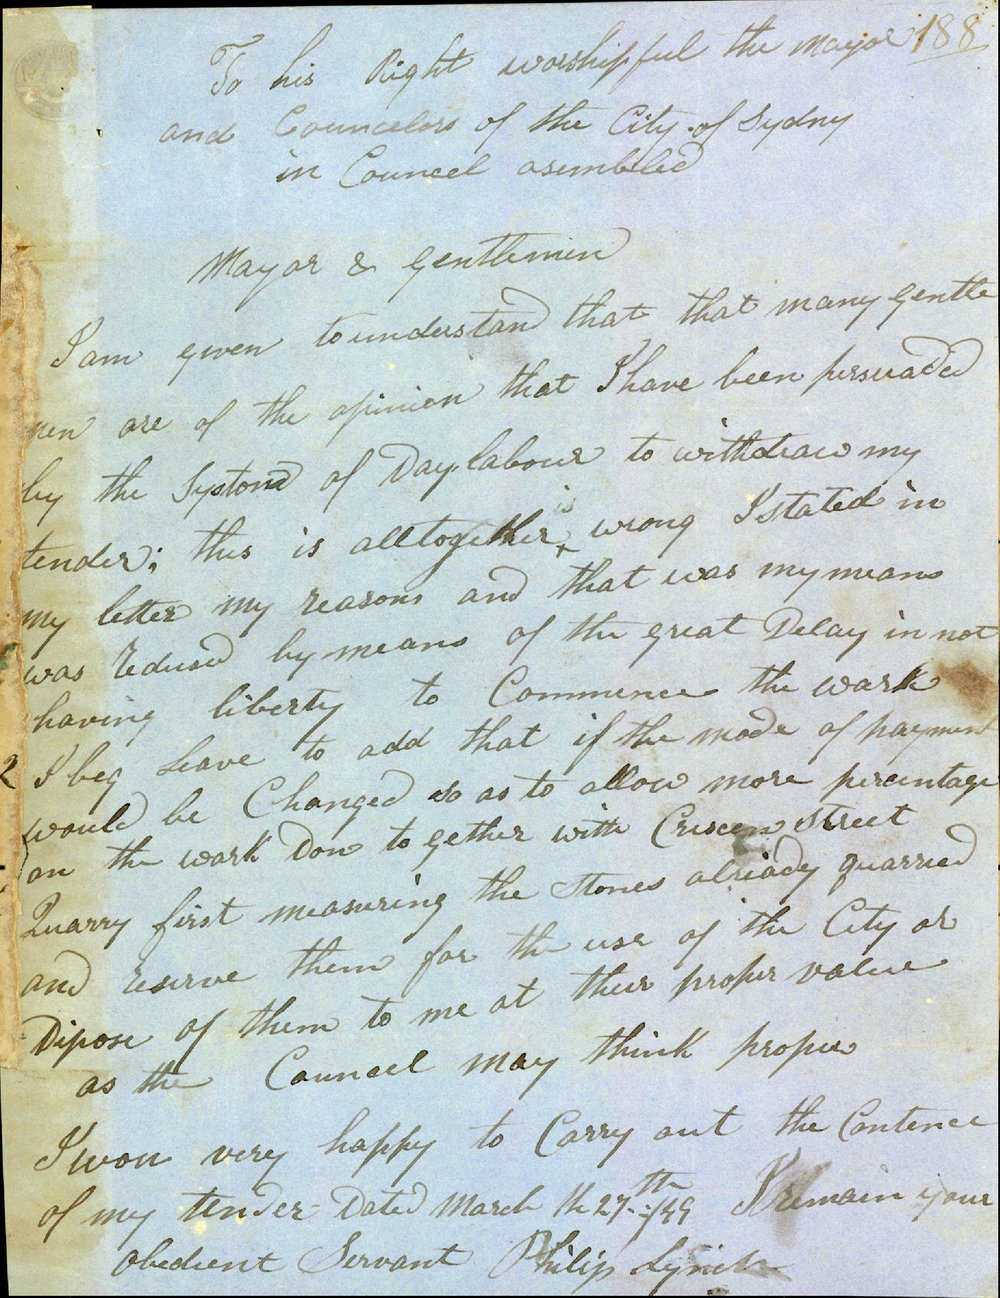 188
To his Right worshipful the Mayor
and Councelors of the City of Sydny
in Councel asembled
Mayor & Gentlemen
I am given to understand that that many Gentle
men are of the opinion that I have been persuaded
by the of Day labour to withdraw my
tender; this is alltogether is wrong I stated in
my letter my reasons and that was my means
was redused by means of the great Delay in not
having liberty to Commence the work
I beg Leave to add that if the mode of payment
would be Changed so as to allow more percentage
on the work Don to gether with Street
Quarry first measuring the Stones already quarried
and reserve them for the use of the City or
Dipose of them to me at their proper value
as the Councel may think proper
I very happy to Carry out the Contence
of my tender Dated March the 27th I remain your
obedient Servant Philip Lynch